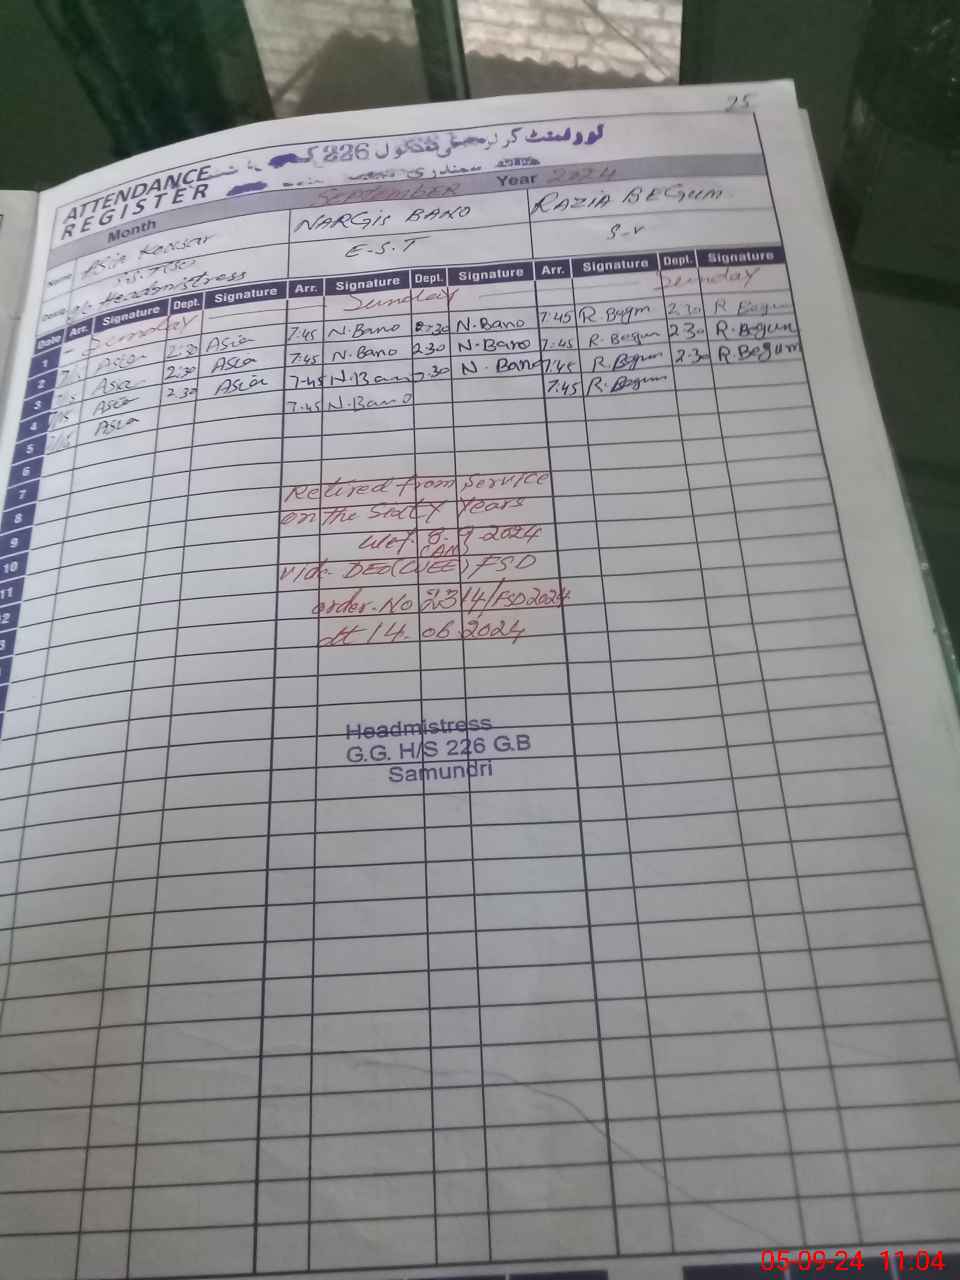 25
ATTENDANCE
REGISTER
گورنمنٹ گرلز سکول 226 گ ب
سمندری
Month September Year 2024
Name Asia Kousar NARGIS BANO RAZIA BEGUM
E-S.T S-V
Headmistress
Date Arr. Signature Dept. Signature Arr. Signature Dept. Signature Arr. Signature Dept. Signature
1 Sunday Sunday Sunday
2 Asia 2:30 Asia 7:45 N.Bano 2:30 N.Bano 7:45 R.Begum 2:30 R Begum
3 Asia 2:30 Asia 7:45 N.Bano 2:30 N.Bano 7:45 R.Begum 2:30 R.Begum
4 Asia 2:30 Asia 7:45 N.Bano 2:30 N.Bano 7:45 R.Begum 2:30 R.Begum
5 Asia 7:45 N.Bano 7:45 R.Begum
6
7
8
9
10
11
Retired from Service
on the Sixty Years
wef. 8.9.2024
(AN)
vide DEO(WEE) FSD
order.No 2314/FSD2024
dt 14.06.2024
Headmistress
G.G. H/S 226 G.B
Samundri
05-09-24 11:04